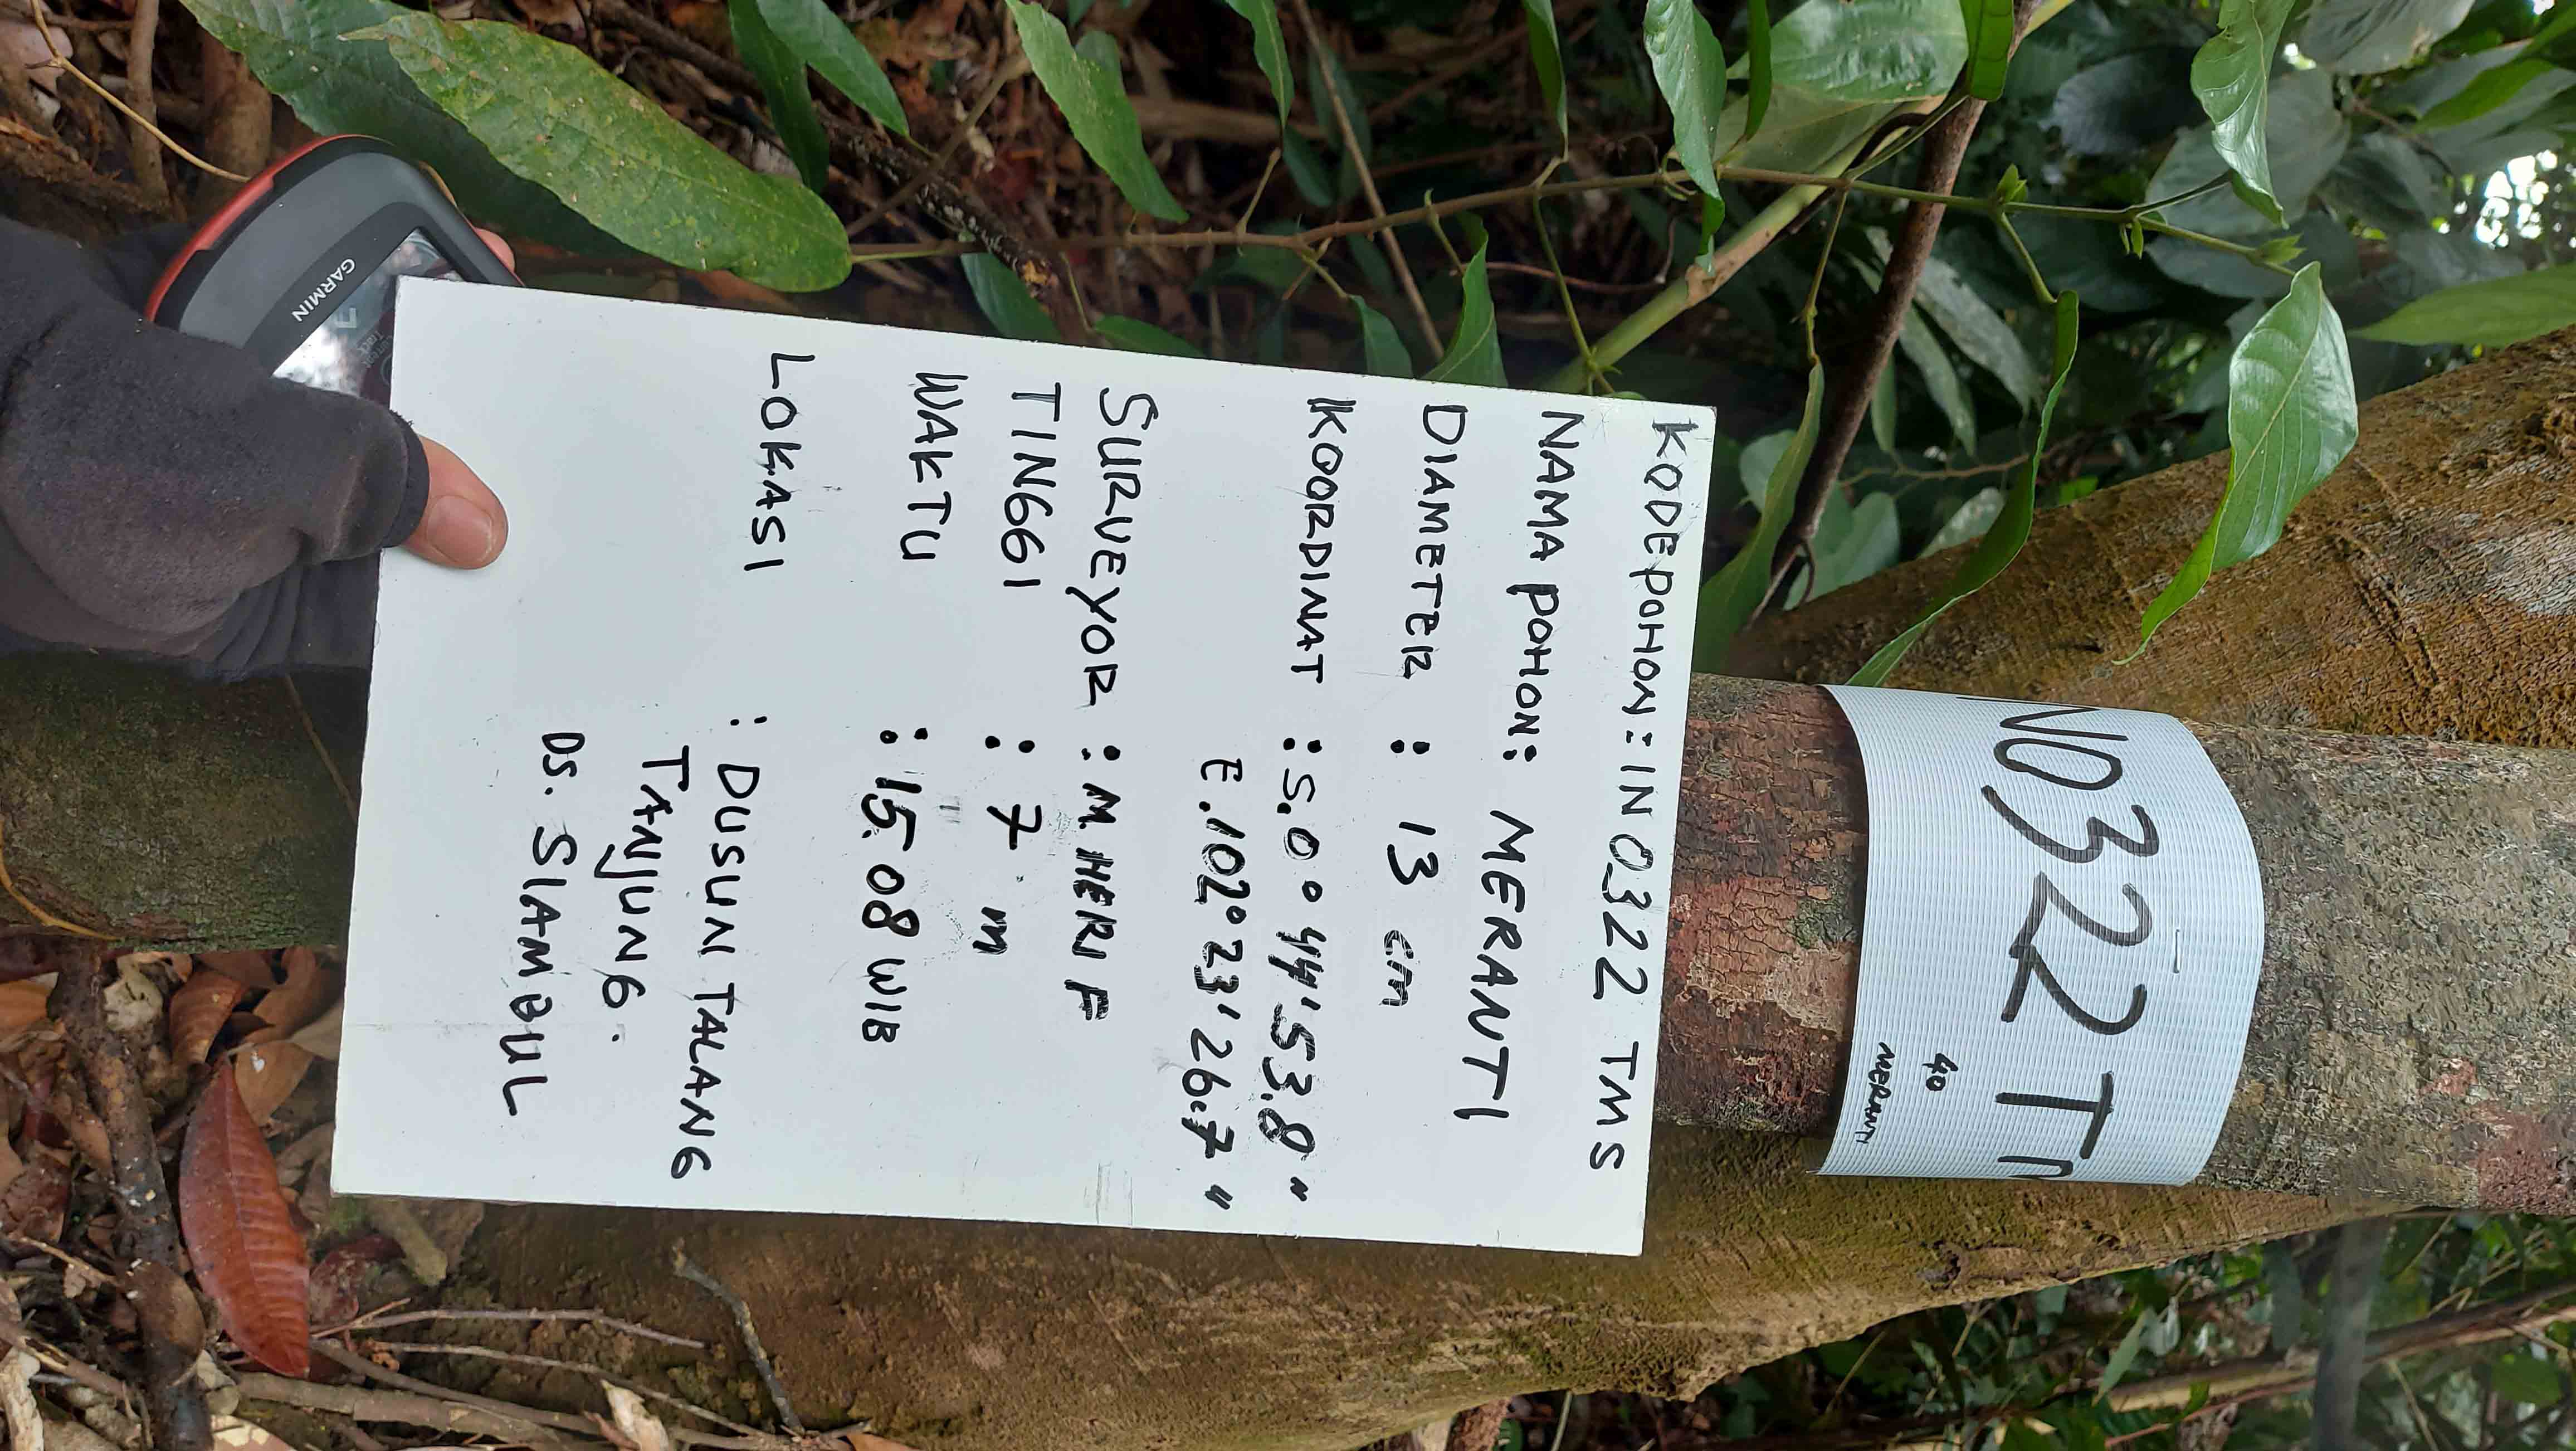 NO322 TM
40
MERANTI
KODE POHON : IN 0322 TMS
NAMA POHON : MERANTI
DIAMETER : 13 cm
KOORDINAT : S.0° 44' 53.8"
E.102° 23' 26.7"
SURVEYOR : M. HERI F
TINGGI : 7 m
WAKTU : 15.08 WIB
LOKASI : DUSUN TALANG
TANJUNG.
DS. SIAMBUL
Current
Track
GARMIN